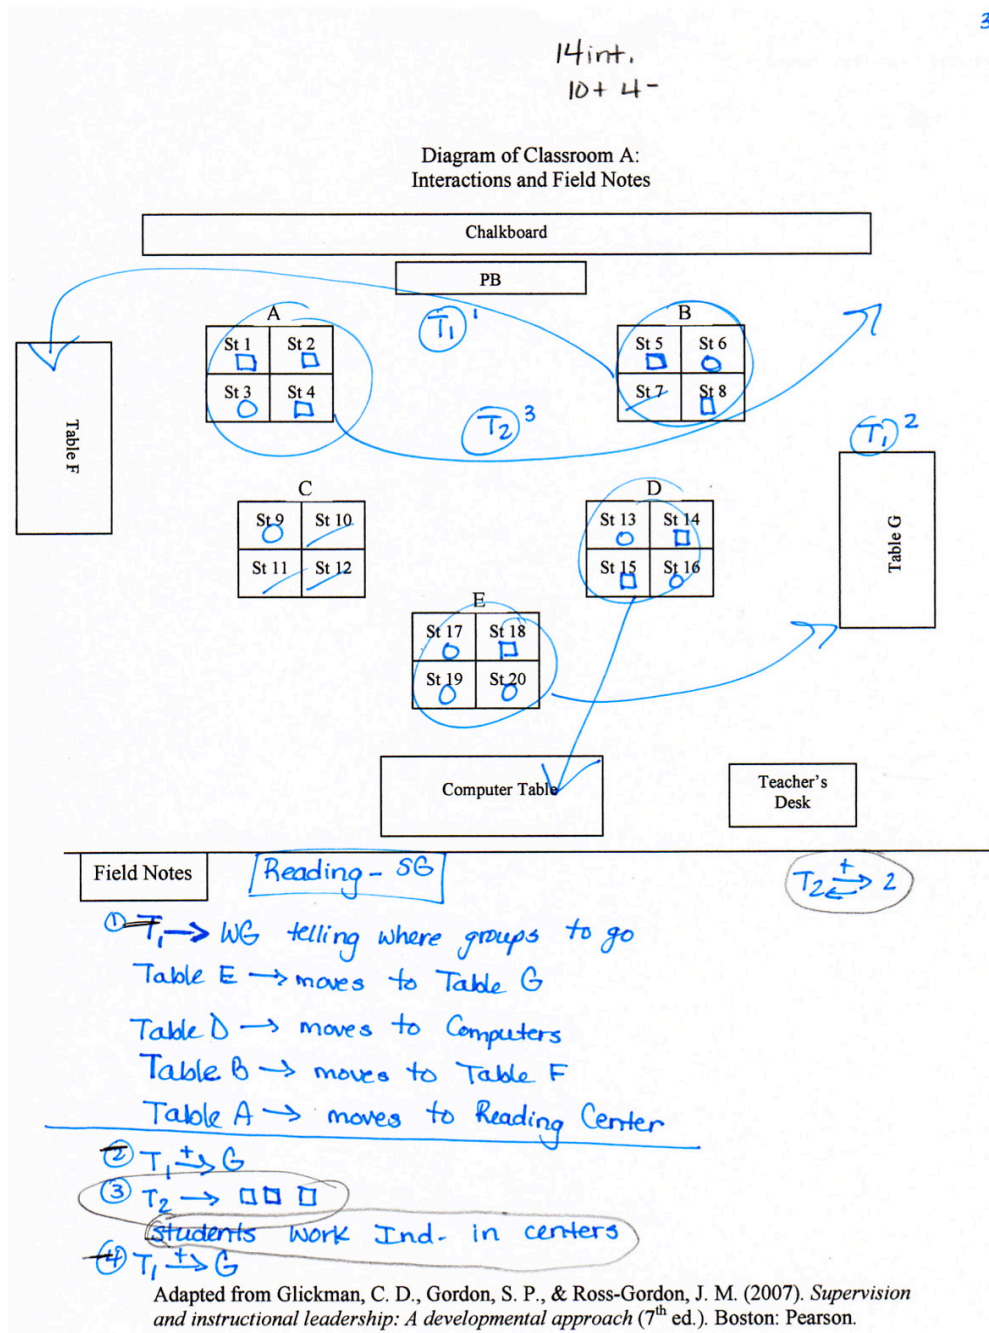 3
14 int.
10+ 4-
Diagram of Classroom A:
Interactions and Field Notes
Chalkboard
PB
A
B
T₁ 1
St 1 St 2
St 5 St 6
St 3 St 4
St 7 St 8
T₂ 3
T₁ 2
Table F
Table G
C
D
St 9 St 10
St 13 St 14
St 11 St 12
St 15 St 16
E
St 17 St 18
St 19 St 20
Computer Table
Teacher's
Desk
Field Notes
Reading - SG
T₂ + 2
① T₁ → WG telling where groups to go
Table E → moves to Table G
Table D → moves to Computers
Table B → moves to Table F
Table A → moves to Reading Center
② T₁ +→ G
③ T₂ → □□ □
students work Ind. in centers
④ T₁ +→ G
Adapted from Glickman, C. D., Gordon, S. P., & Ross-Gordon, J. M. (2007). Supervision
and instructional leadership: A developmental approach (7th ed.). Boston: Pearson.